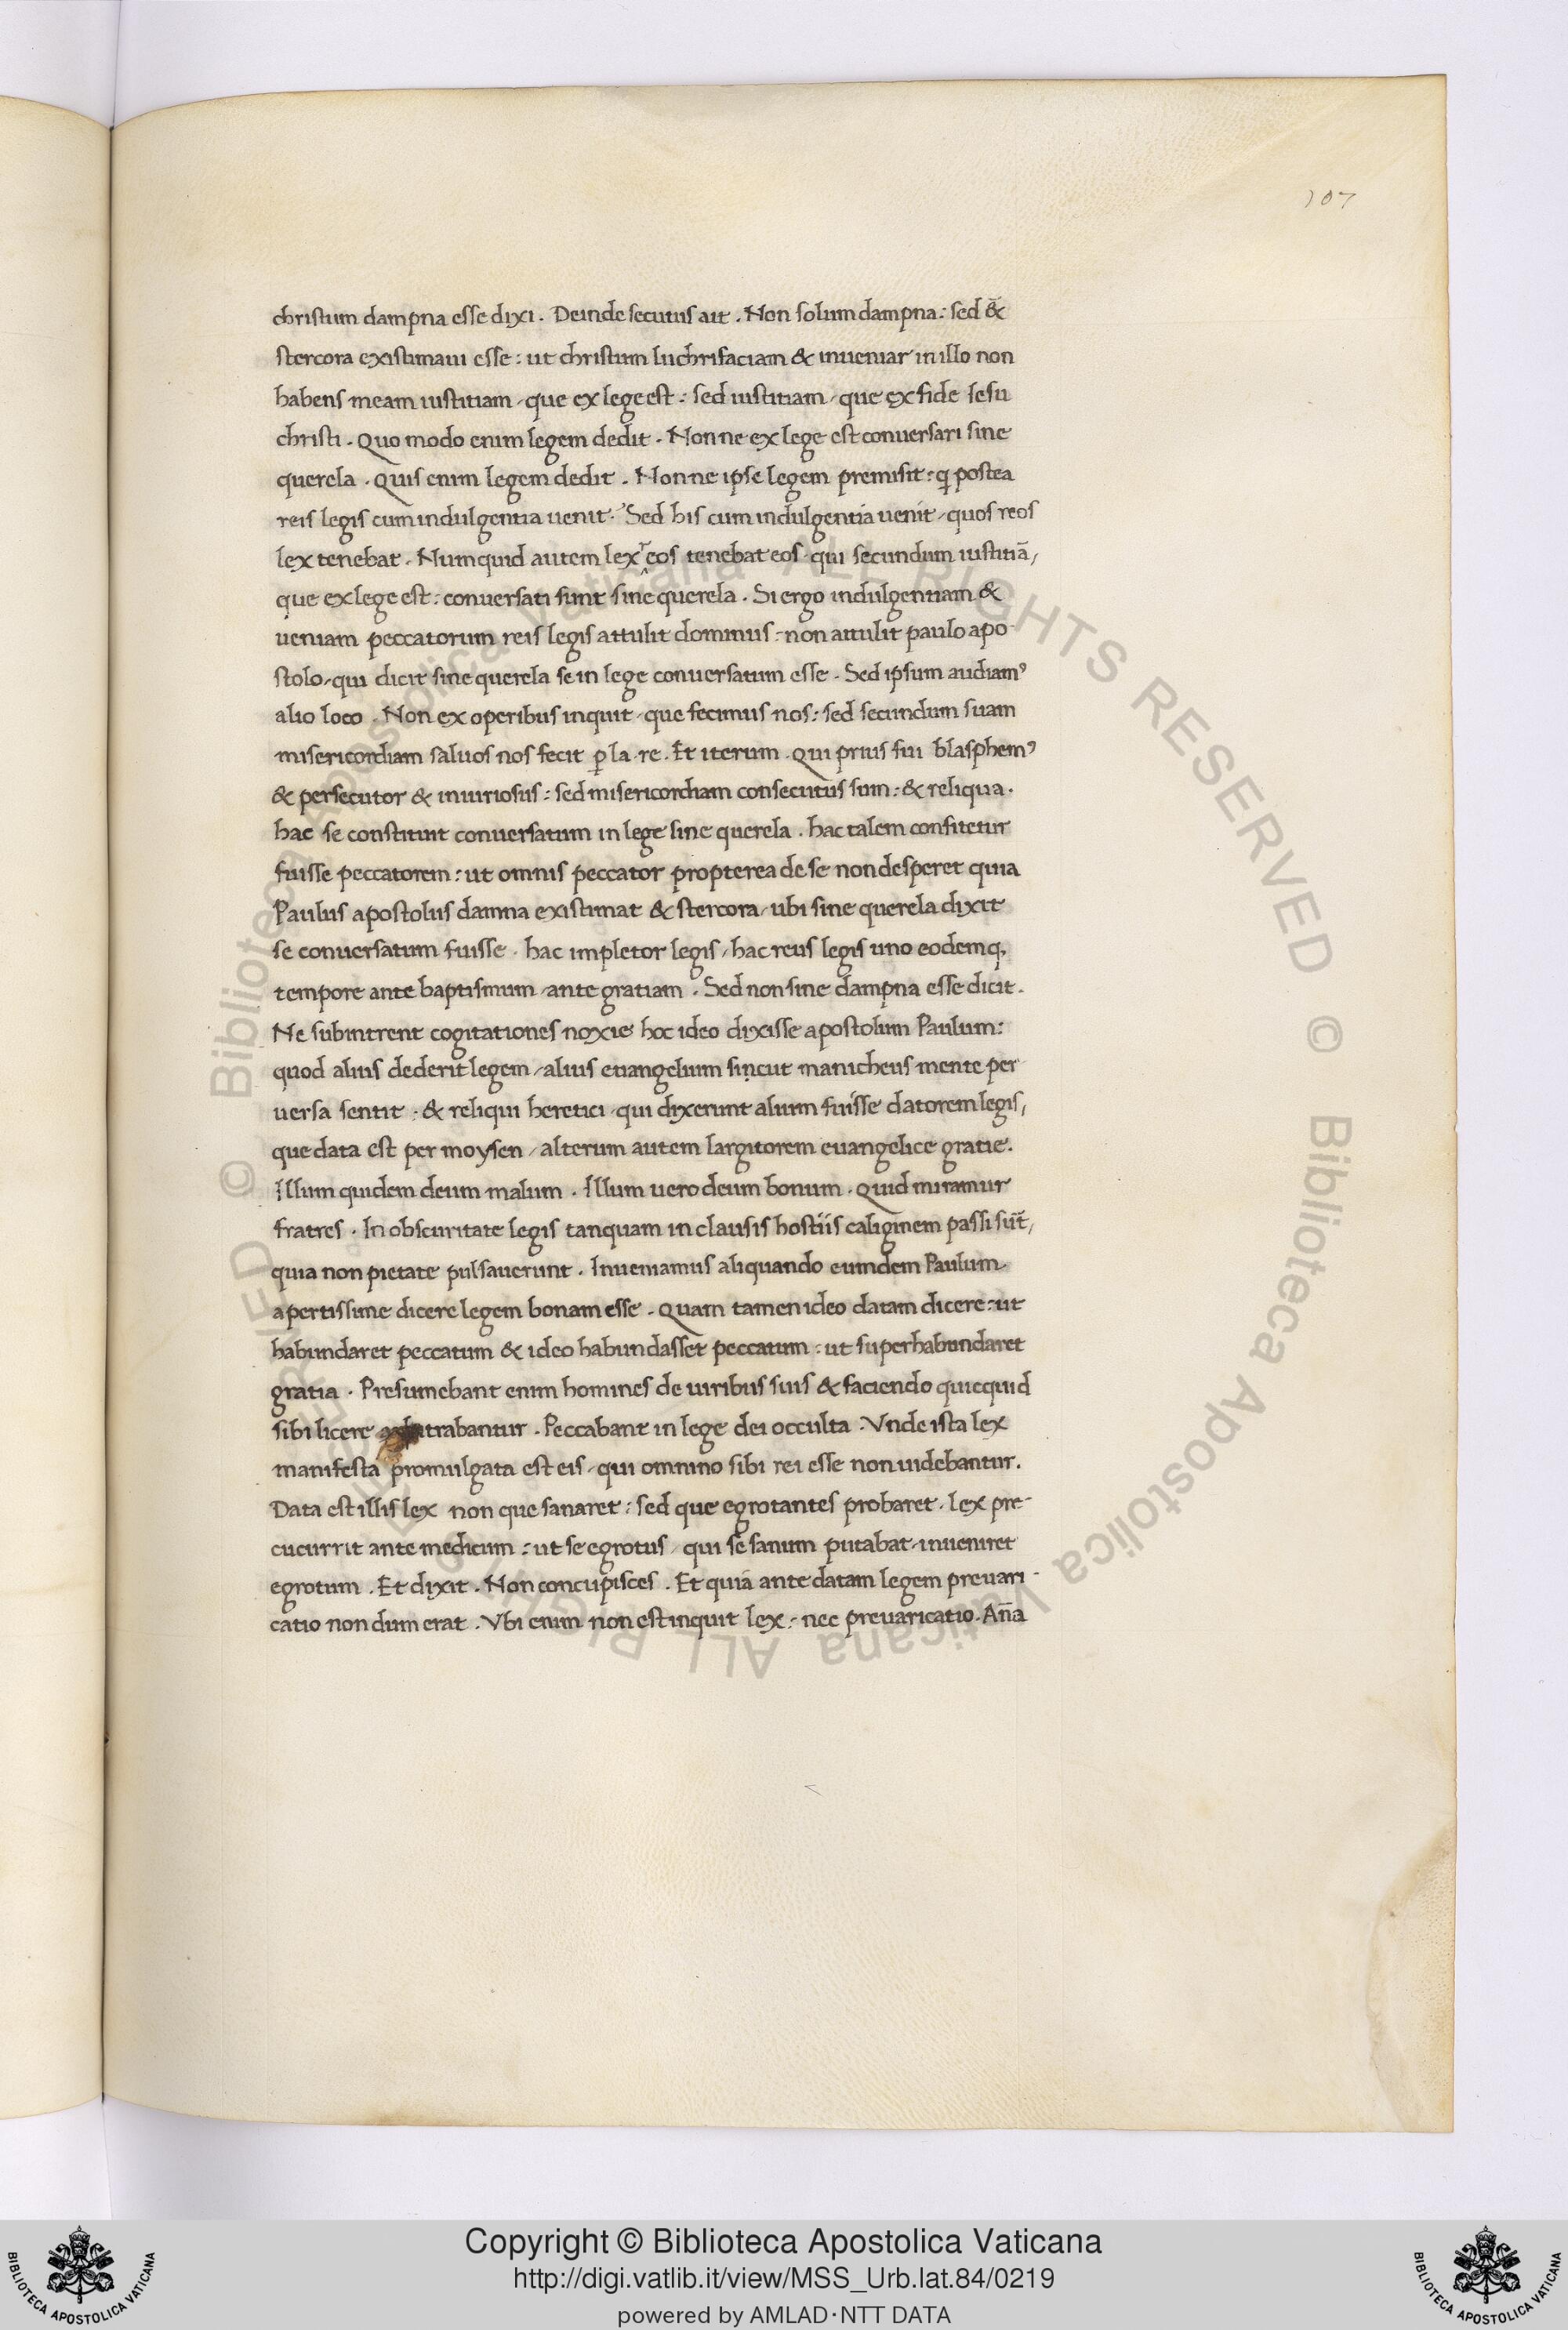 107
christum dampna esse dixi. Deinde secutus ait. Non solum dampna: sed &̃
stercora existimaui esse: ut christum luchrifaciam & inueniar in illo non
habens meam iustitiam, que ex lege est: sed iustitiam, que ex fide Iesu
christi. Quo modo enim legem dedit. Nonne ex lege est conuersari sine
querela. Quis enim legem dedit. Nonne ipse legem premisit: q̃ postea
reis legis cum indulgentia uenit. Sed his cum indulgentia uenit, quos reos
lex tenebat. Numquid autem lex ^reos tenebat eos, qui secundum iustitiā,
que ex lege est: conuersati sunt sine querela. Si ergo indulgentiam &
ueniam peccatorum reis legis attulit dominus: non attulit paulo apo-
stolo, qui dicit sine querela se in lege conuersatum esse. Sed ipsum audiamꝰ
alio loco. Non ex operibus inquit, que fecimus nos: sed secundum suam
misericordiam saluos nos fecit ꝑ la. re. Et iterum. Qui prius fui blasphemꝰ
& persecutor & iniuriosus: sed misericordiam consecutus sum: & reliqua.
hac se constituit conuersatum in lege sine querela. hac talem confitetur
fuisse peccatorem: ut omnis peccator propterea de se non desperet quia
Paulus apostolus damna existimat & stercora, ubi sine querela dixit
se conuersatum fuisse. hac impletor legis, hac reus legis uno eodemq;
tempore ante baptismum, ante gratiam. Sed non sine dampna esse dicit.
Ne subintrent cogitationes noxie hoc ideo dixisse apostolum Paulum:
quod alius dederit legem, alius euangelium sincut manicheus mente per
uersa sentit: & reliqui heretici, qui dixerunt alium fuisse datorem legis,
que data est per moysen, alterum autem largitorem euangelice gratie.
Illum quidem deum malum. Illum uero deum bonum. Quid miramur
fratres. In obscuritate legis tanquam in clausis hostiis caliginem passi sūt,
quia non pietate pulsauerunt. Inueniamus aliquando eumdem Paulum,
apertissime dicere legem bonam esse. Quam tamen ideo datam dicere: ut
habundaret peccatum & ideo habundasset peccatum: ut superhabundaret
gratia. Presumebant enim homines de uiribus suis & faciendo quicquid
sibi licere trabantur. Peccabant in lege dei occulta. Vnde ista lex
manifesta promulgata est eis, qui omnino sibi rei esse non uidebantur.
Data est illis lex non que sanaret: sed que egrotantes probaret. Lex pre-
cucurrit ante medicum: ut se egrotus, qui se sanum putabat, inueniret
egrotum. Et dixit. Non concupisces. Et quia ante datam legem preuari-
catio non dum erat. Vbi enim non est inquit lex: nec preuaricatio. Añа
© Biblioteca Apostolica Vaticana ALL RIGHTS RESERVED © Biblioteca Apostolica Vaticana ALL RIGHTS RESERVED
BIBLIOTECA APOSTOLICA VATICANA
Copyright © Biblioteca Apostolica Vaticana
http://digi.vatlib.it/view/MSS_Urb.lat.84/0219
powered by AMLAD·NTT DATA
BIBLIOTECA APOSTOLICA VATICANA